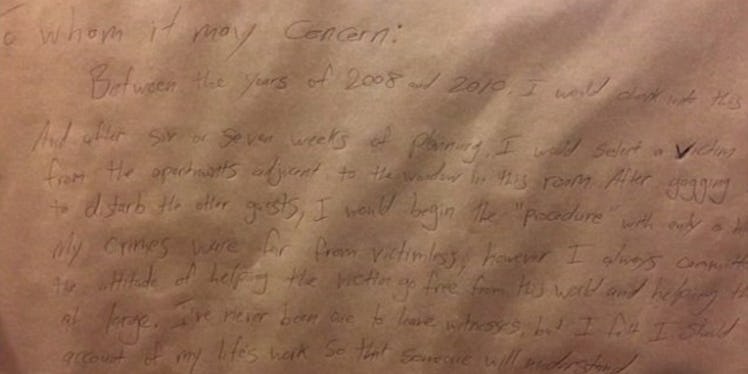 o whom it may Concern:
Between the years of 2008 and 2010, I would check into this
And after six or seven weeks of planning, I would select a victim
from the apartments adjacent to the window in this room. After gagging
to disturb the other guests, I would begin the "procedure" with only a
My crimes were far from victimless, however I always committ
the attitude of helping the victim go free from this world and helping th
at large. I've never been one to leave witnesses, but I felt I should
account of my life's work so that someone will understand